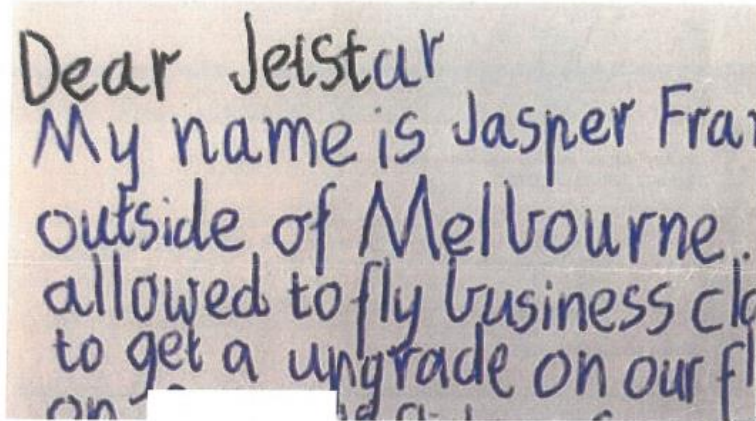 Dear Jetstar
My name is Jasper Fra
outside of Melbourne.
allowed to fly business cla
to get a upgrade on our fl
on